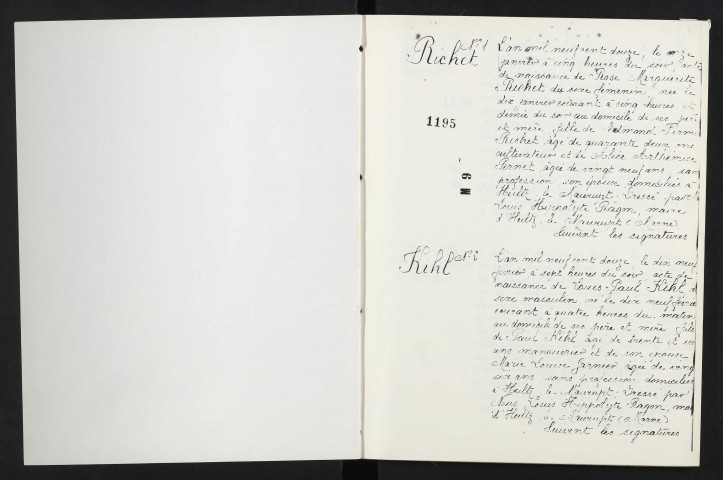 Richet Nº 1
L'an mil neuf cent douze, le onze
janvier à cinq heures du soir acte
de naissance de Rose Marguerite
Richet du sexe féminin, née le
dix janvier courant à cinq heures et
demie du soir au domicile de ses père
et mère fille de Edmond Firmin
Richet âgé de quarante deux ans
cultivateur et de Alice Arthémise
Pernet, âgée de vingt neuf ans sans
profession son épouse domiciliés à
Heiltz le Maurupt. Dressé par
Louis Hippolyte Ragon, maire
d'Heiltz le Maurupt (Marne)
Suivent les signatures
1195
M 9
Kihl Nº 2
L'an mil neuf cent douze, le dix neuf
février à sept heures du soir acte de
naissance de Louis Paul Kihl
sexe masculin né le dix neuf février
courant à quatre heures du matin
au domicile de ses père et mère fils
de Paul Kihl âgé de trente et
ans manouvrier et de son épouse
Marie Louise Garnier âgée de vingt
six ans sans profession domiciliés
à Heiltz le Maurupt Dressé par
Nous Louis Hippolyte Ragon, maire
d'Heiltz le Maurupt (Marne)
Suivent les signatures